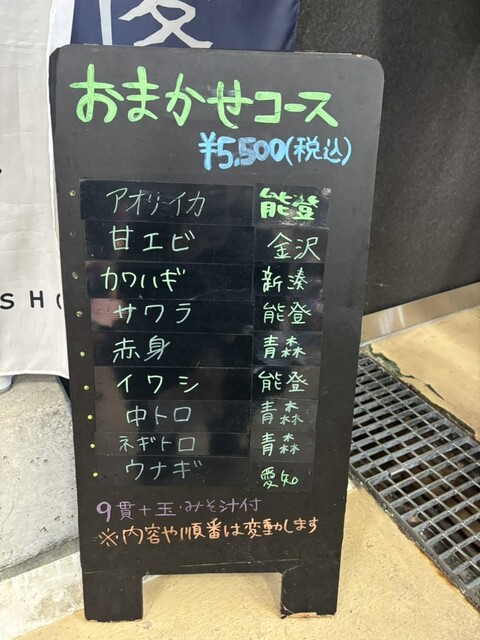 おまかせコース
¥5,500(税込)
アオリイカ 能登
甘エビ 金沢
カワハギ 新湊
サワラ 能登
赤身 青森
イワシ 能登
中トロ 青森
ネギトロ 青森
ウナギ 愛知
9貫+玉・みそ汁付
※内容や順番は変動します